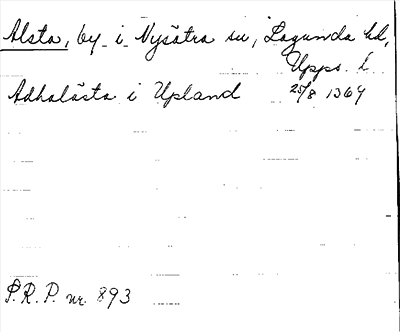 Alsta, by i Nysätra sn, Lagunda hd,
Upps. l
Adhalästa i Upland 25/8 1369
P.R.P. nr. 893